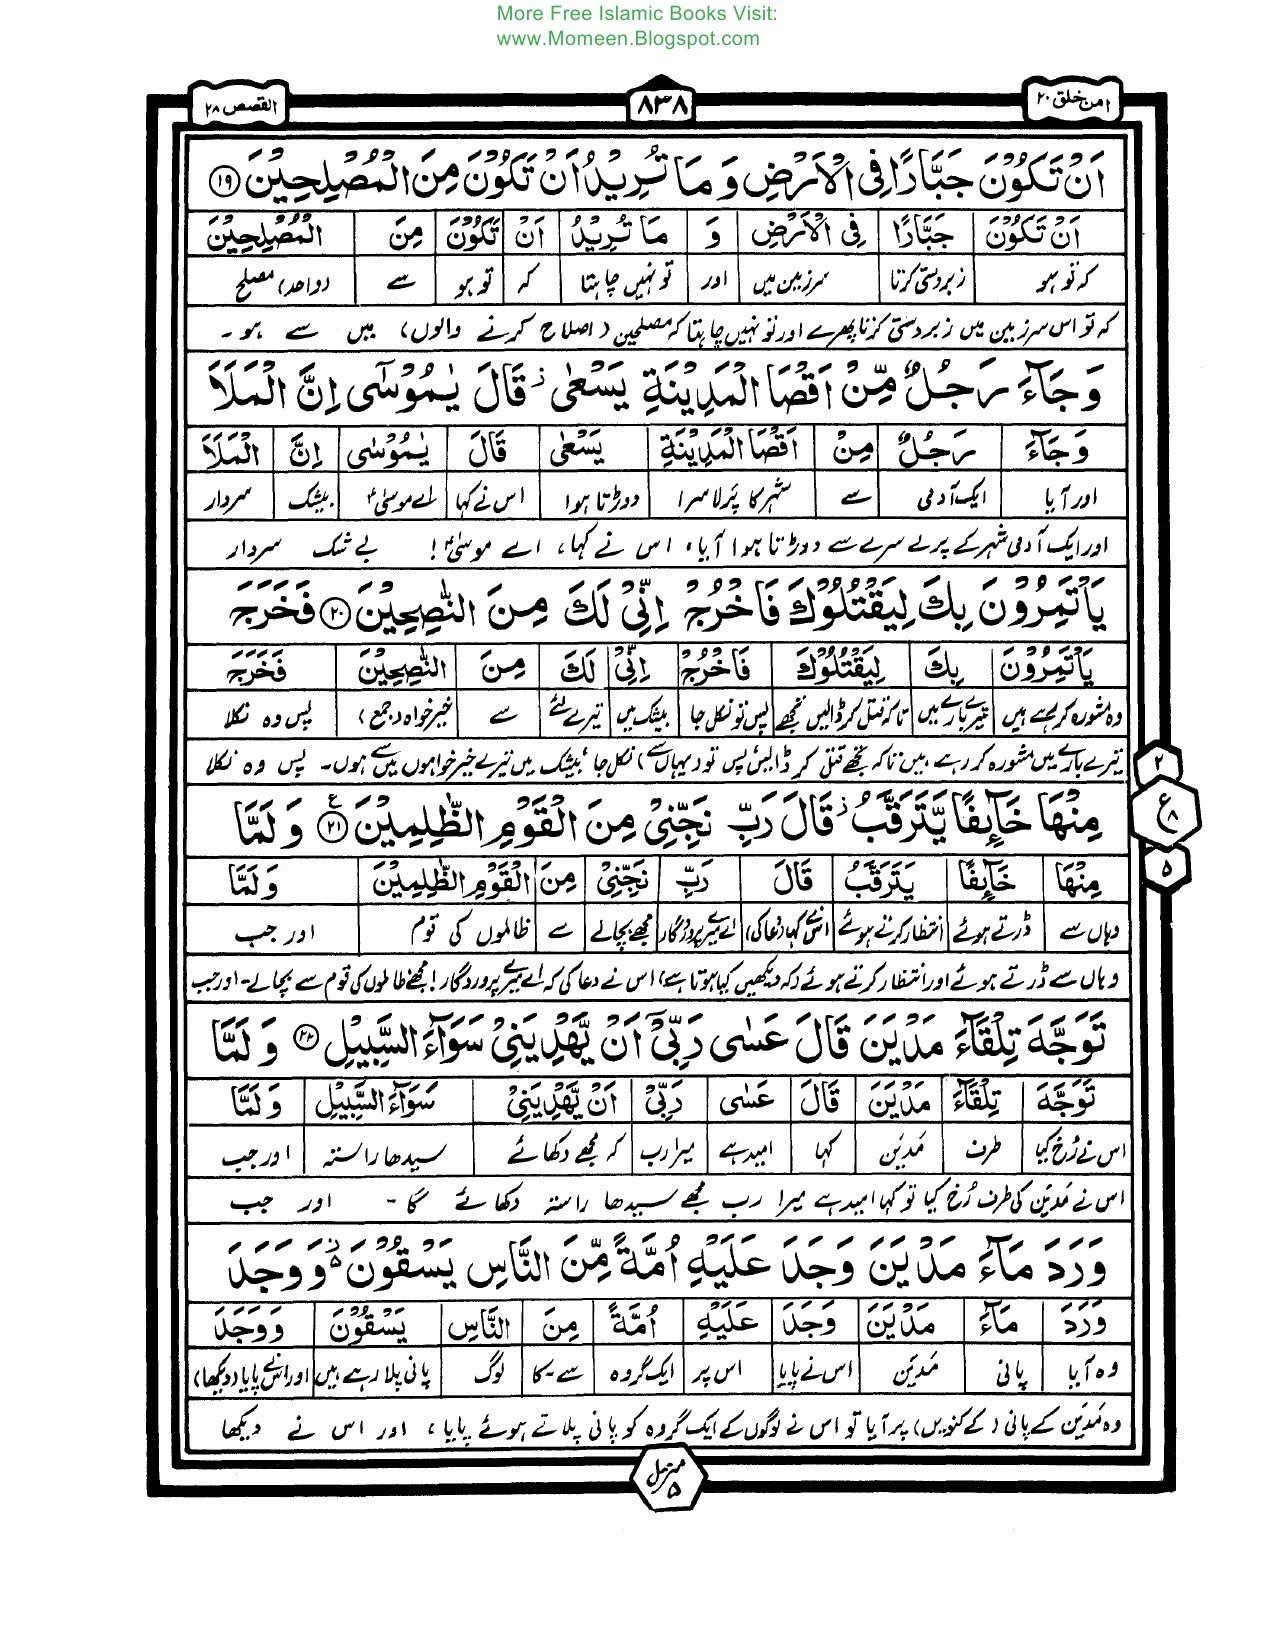 More Free Islamic Books Visit:
www.Momeen.Blogspot.com
امن خلق ۲۰
۸۳۸
القصص ۲۸
اَنْ تَكُوْنَ جَبَّارًا فِی الْاَرْضِ وَ مَا تُرِیْدُ اَنْ تَكُوْنَ مِنَ الْمُصْلِحِیْنَ ۱۹
اَنْ تَكُوْنَ جَبَّارًا فِی الْاَرْضِ وَ مَا تُرِیْدُ اَنْ تَكُوْنَ مِنَ الْمُصْلِحِیْنَ
کہ تو ہو زبردستی کرتا سرزمین میں اور تو نہیں چاہتا کہ تو ہو سے (واحد) مصلح
کہ تو اس سرزمین میں زبردستی کرتا پھرے اور تو نہیں چاہتا کہ مصلحین (اصلاح کرنے والوں) میں سے ہو۔
وَ جَآءَ رَجُلٌ مِّنْ اَقْصَا الْمَدِیْنَةِ یَسْعٰی ز قَالَ یٰمُوْسٰۤی اِنَّ الْمَلَاَ
وَ جَآءَ رَجُلٌ مِنْ اَقْصَا الْمَدِیْنَةِ یَسْعٰی قَالَ یٰمُوْسٰۤی اِنَّ الْمَلَاَ
اور آیا ایک آدمی سے شہر کا پرلا سرا دوڑتا ہوا اس نے کہا اے موسیٰؑ بیشک سردار
اور ایک آدمی شہر کے پرلے سرے سے دوڑتا ہوا آیا، اس نے کہا، اے موسیٰؑ! بے شک سردار
یَاْتَمِرُوْنَ بِكَ لِیَقْتُلُوْكَ فَاخْرُجْ اِنِّیْ لَكَ مِنَ النّٰصِحِیْنَ ۲۰ فَخَرَجَ
یَاْتَمِرُوْنَ بِكَ لِیَقْتُلُوْكَ فَاخْرُجْ اِنِّیْ لَكَ مِنَ النّٰصِحِیْنَ فَخَرَجَ
وہ مشورہ کر رہے ہیں تیرے بارے میں تاکہ قتل کر ڈالیں تجھے پس تو نکل جا بیشک میں تیرے لئے سے خیر خواہ (جمع) پس وہ نکلا
تیرے بارے میں مشورہ کر رہے ہیں تاکہ تجھے قتل کر ڈالیں پس تو (یہاں سے) نکل جا بیشک میں تیرے خیر خواہوں میں سے ہوں۔ پس وہ نکلا
مِنْهَا خَآىِٕفًا یَّتَرَقَّبُ ز قَالَ رَبِّ نَجِّنِیْ مِنَ الْقَوْمِ الظّٰلِمِیْنَ ۲۱ ع وَ لَمَّا
مِنْهَا خَآىِٕفًا یَتَرَقَّبُ قَالَ رَبِّ نَجِّنِیْ مِنَ الْقَوْمِ الظّٰلِمِیْنَ وَ لَمَّا
وہاں سے ڈرتے ہوئے انتظار کرتے ہوئے اس نے کہا (دعا کی) اے میرے پروردگار مجھے بچا لے سے ظالموں کی قوم اور جب
وہاں سے ڈرتے ہوئے اور انتظار کرتے ہوئے (کہ دیکھیں کیا ہوتا ہے) اس نے دعا کی کہ اے میرے پروردگار! مجھے ظالموں کی قوم سے بچا لے۔ اور جب
۲
ع ۸
۵
تَوَجَّهَ تِلْقَآءَ مَدْیَنَ قَالَ عَسٰی رَبِّیْۤ اَنْ یَّهْدِیَنِیْ سَوَآءَ السَّبِیْلِ ۲۲ وَ لَمَّا
تَوَجَّهَ تِلْقَآءَ مَدْیَنَ قَالَ عَسٰی رَبِّیْۤ اَنْ یَّهْدِیَنِیْ سَوَآءَ السَّبِیْلِ وَ لَمَّا
اس نے رُخ کیا طرف مَدیَن کہا امید ہے میرا رب کہ مجھے دکھائے سیدھا راستہ اور جب
اس نے مَدیَن کی طرف رُخ کیا تو کہا امید ہے میرا رب مجھے سیدھا راستہ دکھائے گا۔ اور جب
وَرَدَ مَآءَ مَدْیَنَ وَجَدَ عَلَیْهِ اُمَّةً مِّنَ النَّاسِ یَسْقُوْنَ ۵ ز وَ وَجَدَ
وَرَدَ مَآءَ مَدْیَنَ وَجَدَ عَلَیْهِ اُمَّةً مِنَ النَّاسِ یَسْقُوْنَ وَ وَجَدَ
وہ آیا پانی مَدیَن اس نے پایا اس پر ایک گروہ سے۔کا لوگ پانی پلا رہے ہیں اور اس نے پایا (دیکھا)
وہ مَدیَن کے پانی (کے کنویں) پر آیا تو اس نے لوگوں کے ایک گروہ کو پانی پلاتے ہوئے پایا، اور اس نے دیکھا
منزل ۵